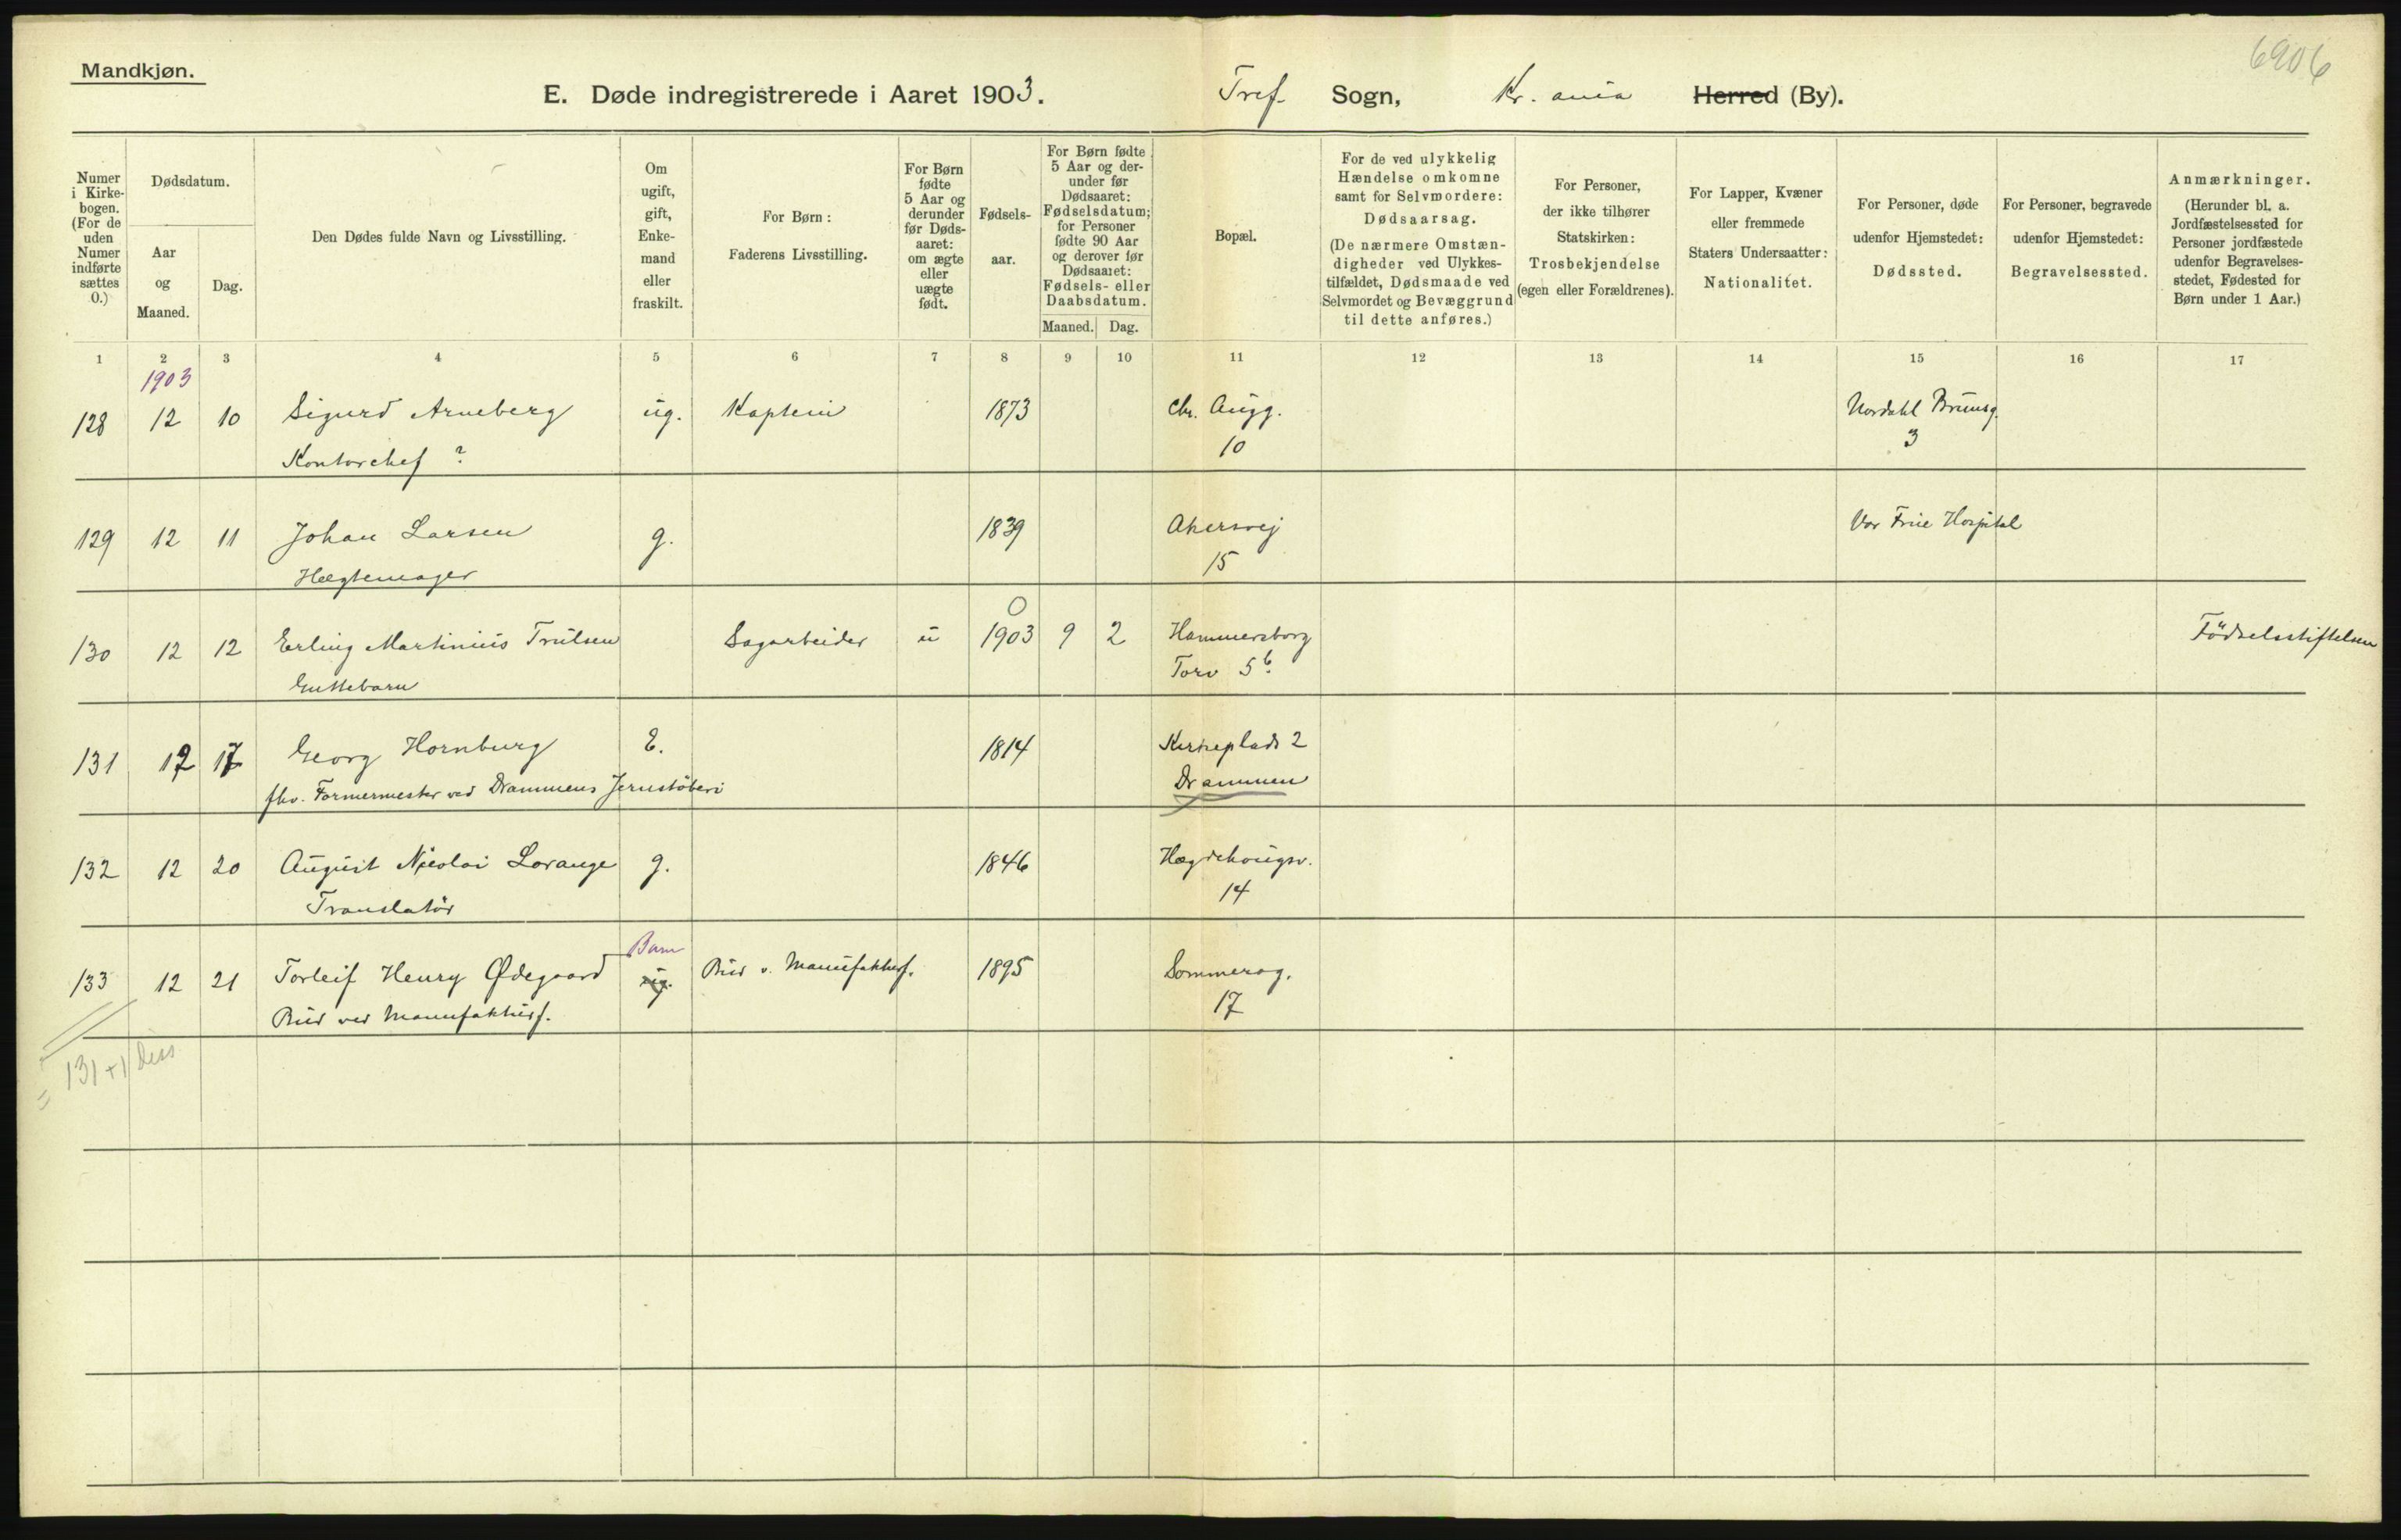 6906
Mandkjøn.
E. Døde indregistrerede i Aaret 1903. Tref. Sogn, Kr. ania Herred (By).
Numer i Kirke-bogen. (For de uden Numer indførte sættes 0.)
Dødsdatum.
Aar og Maaned.
Dag.
Den Dødes fulde Navn og Livsstilling.
Om ugift, gift, Enke-mand eller fraskilt.
For Børn: Faderens Livsstilling.
For Børn fødte 5 Aar og derunder før Døds-aaret: om ægte eller uægte født.
Fødsels-aar.
For Børn fødte 5 Aar og der-under før Dødsaaret: Fødselsdatum; for Personer fødte 90 Aar og derover før Dødsaaret: Fødsels- eller Daabsdatum.
Maaned. Dag.
Bopæl.
For de ved ulykkelig Hændelse omkomne samt for Selvmordere: Dødsaarsag. (De nærmere Omstæn-digheder ved Ulykkes-tilfældet, Dødsmaade ved Selvmordet og Bevæggrund til dette anføres.)
For Personer, der ikke tilhører Statskirken: Trosbekjendelse (egen eller Forældrenes).
For Lapper, Kvæner eller fremmede Staters Undersaatter: Nationalitet.
For Personer, døde udenfor Hjemstedet: Dødssted.
For Personer, begravede udenfor Hjemstedet: Begravelsessted.
Anmærkninger. (Herunder bl. a. Jordfæstelsessted for Personer jordfæstede udenfor Begravelses-stedet, Fødested for Børn under 1 Aar.)
1 2 3 4 5 6 7 8 9 10 11 12 13 14 15 16 17
1903
128 12 10 Sigurd Arneberg ug. Kaptein 1873 Chr. Augg. Nordahl Brunsg.
Kontorchef ? 10 3
129 12 11 Johan Larsen g. 1839 Akersvej Vor Frue Hospital
Hægtemager 15
0
130 12 12 Erling Martinius Trulsen Sagarbeider u 1903 9 2 Hammersborg Födselsstiftelsen
Guttebarn Torv 5b.
131 12 17 Georg Hornburg E. 1814 Kirkeplads 2
fhv. Formermester ved Drammens Jernstöberi Drammen
132 12 20 August Nicolai Lorange g. 1846 Hægdehougsv.
Translatör 14
Barn
133 12 21 Torleif Henry Ødegaard ug. Bud v. Manufakturf. 1895 Sommerog.
Bud ved Manufakturf. 17
= 131+1